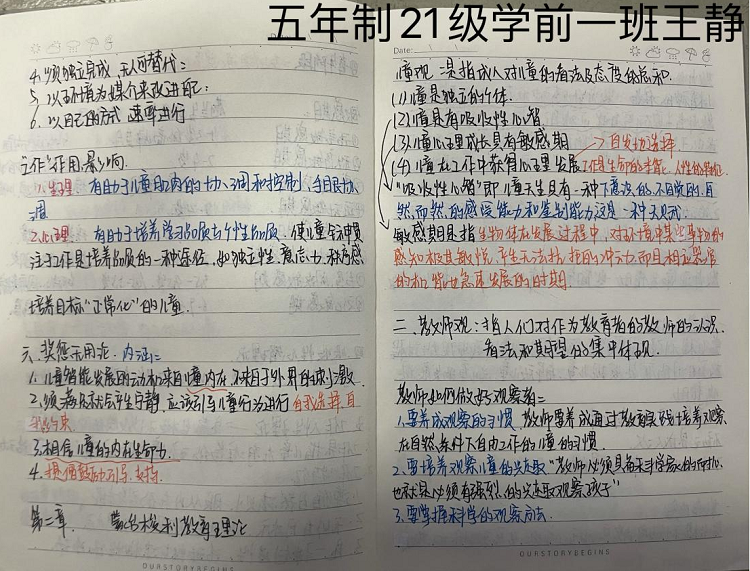 五年制21级学前一班王静
4.须独立完成,无人可替代:
5.以环境为媒介来改进自己:
6.以自己的方式、速率进行
"工作"作用.影响.
1.生理. 有助于儿童肌肉的协调和控制
2.心理. 有助于培养学习品质与个性品质.使儿童全神贯
注于工作是培养品质的一种途径,如独立性.意志力.秩序感
培养目标"正常化"的儿童.
六、奖惩无用论. 内涵:
1.儿童智能发展的动机来自儿童内在.不来自于外界的球刺激.
应该引导儿童行为进行自我选择.自
我约束
3.相信儿童的内在生命力.
4.提倡鼓励.引导.支持.
第二章. 蒙台梭利教育理论
OURSTORYBEGINS
Date:
儿童观:是指成人对儿童的看法及态度的总和.
(1)儿童是独立的个体.
(2)儿童具有吸收性心智
(3)儿童心理成长具有敏感期 → 自发地选择
(4)儿童在工作中获得心理发展
"吸收性心智"即儿童天生具有一种下意识的.不自觉的.自
然而然的感受能力和鉴别能力这是一种天赋.
敏感期是指生物体在发展过程中,对环境中某些事物的
感知极其敏锐.产生无法抗拒的冲动力.而且相应器官
的机能也急速发展的时期.
二、教师观:指人们对作为教育者的教师的认识.
看法和期望的集中体现.
教师如何做好观察者:
1.要养成观察的习惯.教师要养成通过教育实践培养观察
在自然条件下自由工作的儿童的习惯.
2.要培养观察儿童的兴趣."教师必须具备科学家的
也就是必须有强烈的兴趣观察孩子"
3.要掌握科学的观察方法.
OURSTORYBEGINS